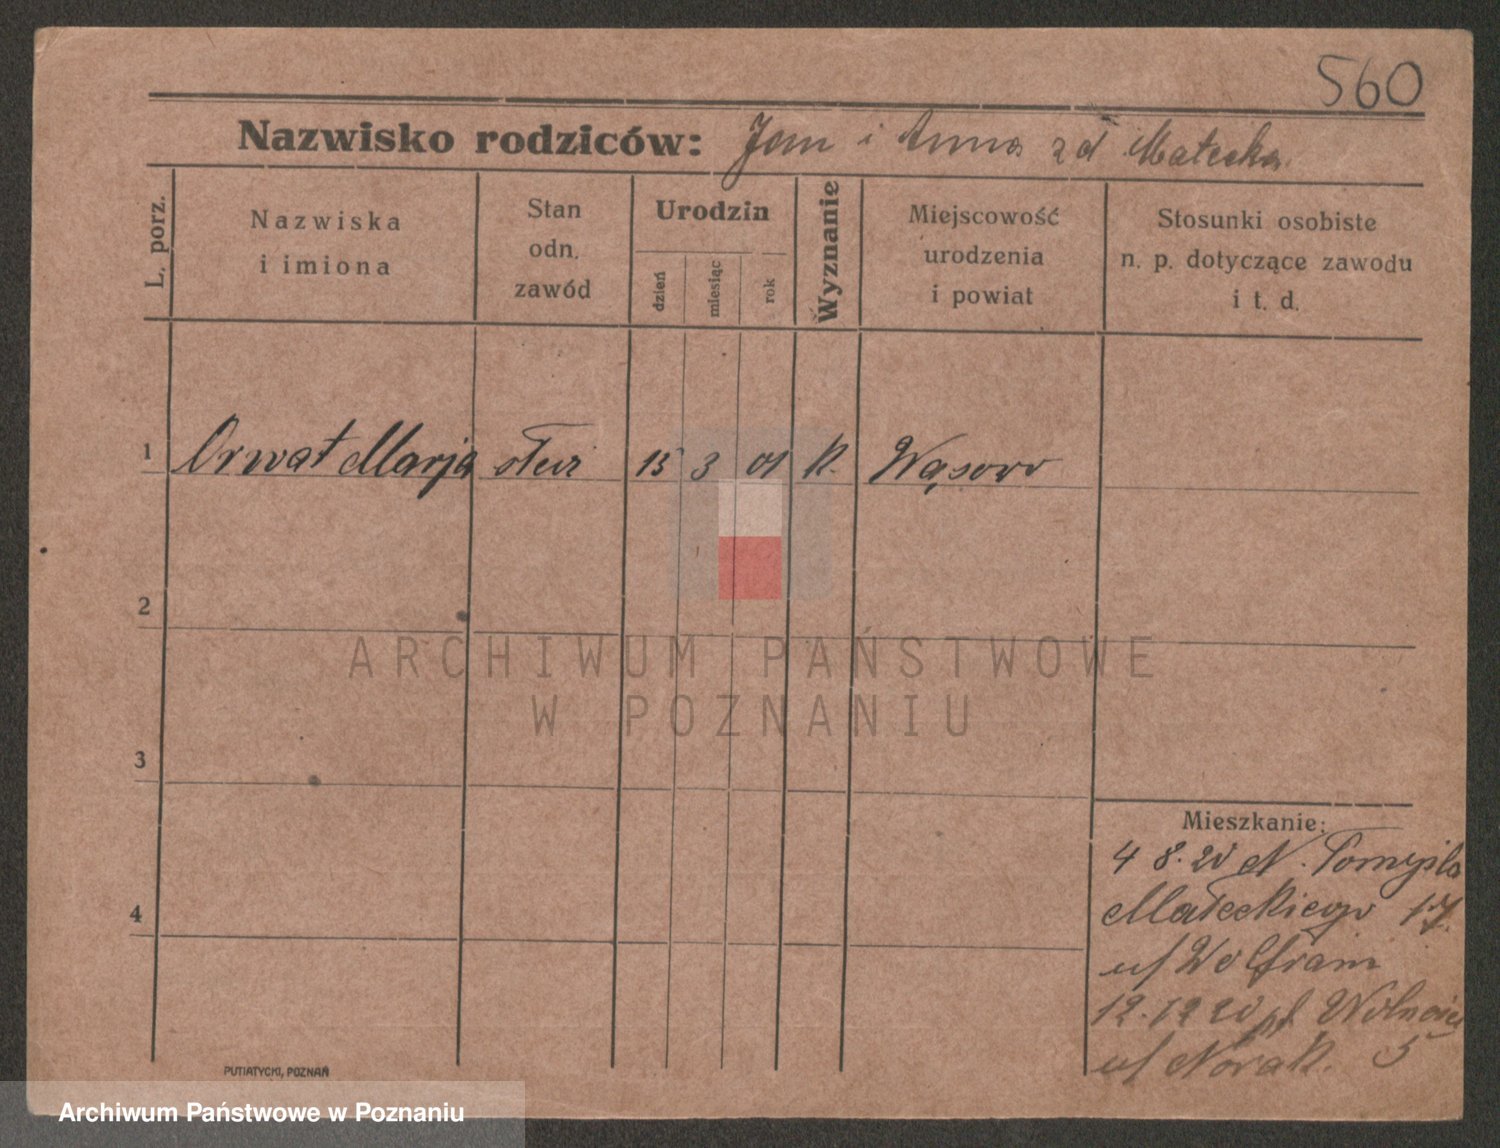 560
Nazwisko rodziców: Jan i Anna z d Małecka
L. porz.
Nazwiska
i imiona
Stan
odn.
zawód
Urodzin
dzień
miesiąc
rok
Wyznanie
Miejscowość
urodzenia
i powiat
Stosunki osobiste
n. p. dotyczące zawodu
i t. d.
1 Orwat Marja 15 3 01 k. Wąsowo
2
ARCHIWUM PAŃSTWOWE
W POZNANIU
3
4
Mieszkanie:
4 8. 20 N. Tomyśla
Małeckiego 17.
u/ Wolfram
12.12 20 pl Wolności
u/ Nowak. 5
PUTIATYCKI, POZNAŃ
Archiwum Państwowe w Poznaniu